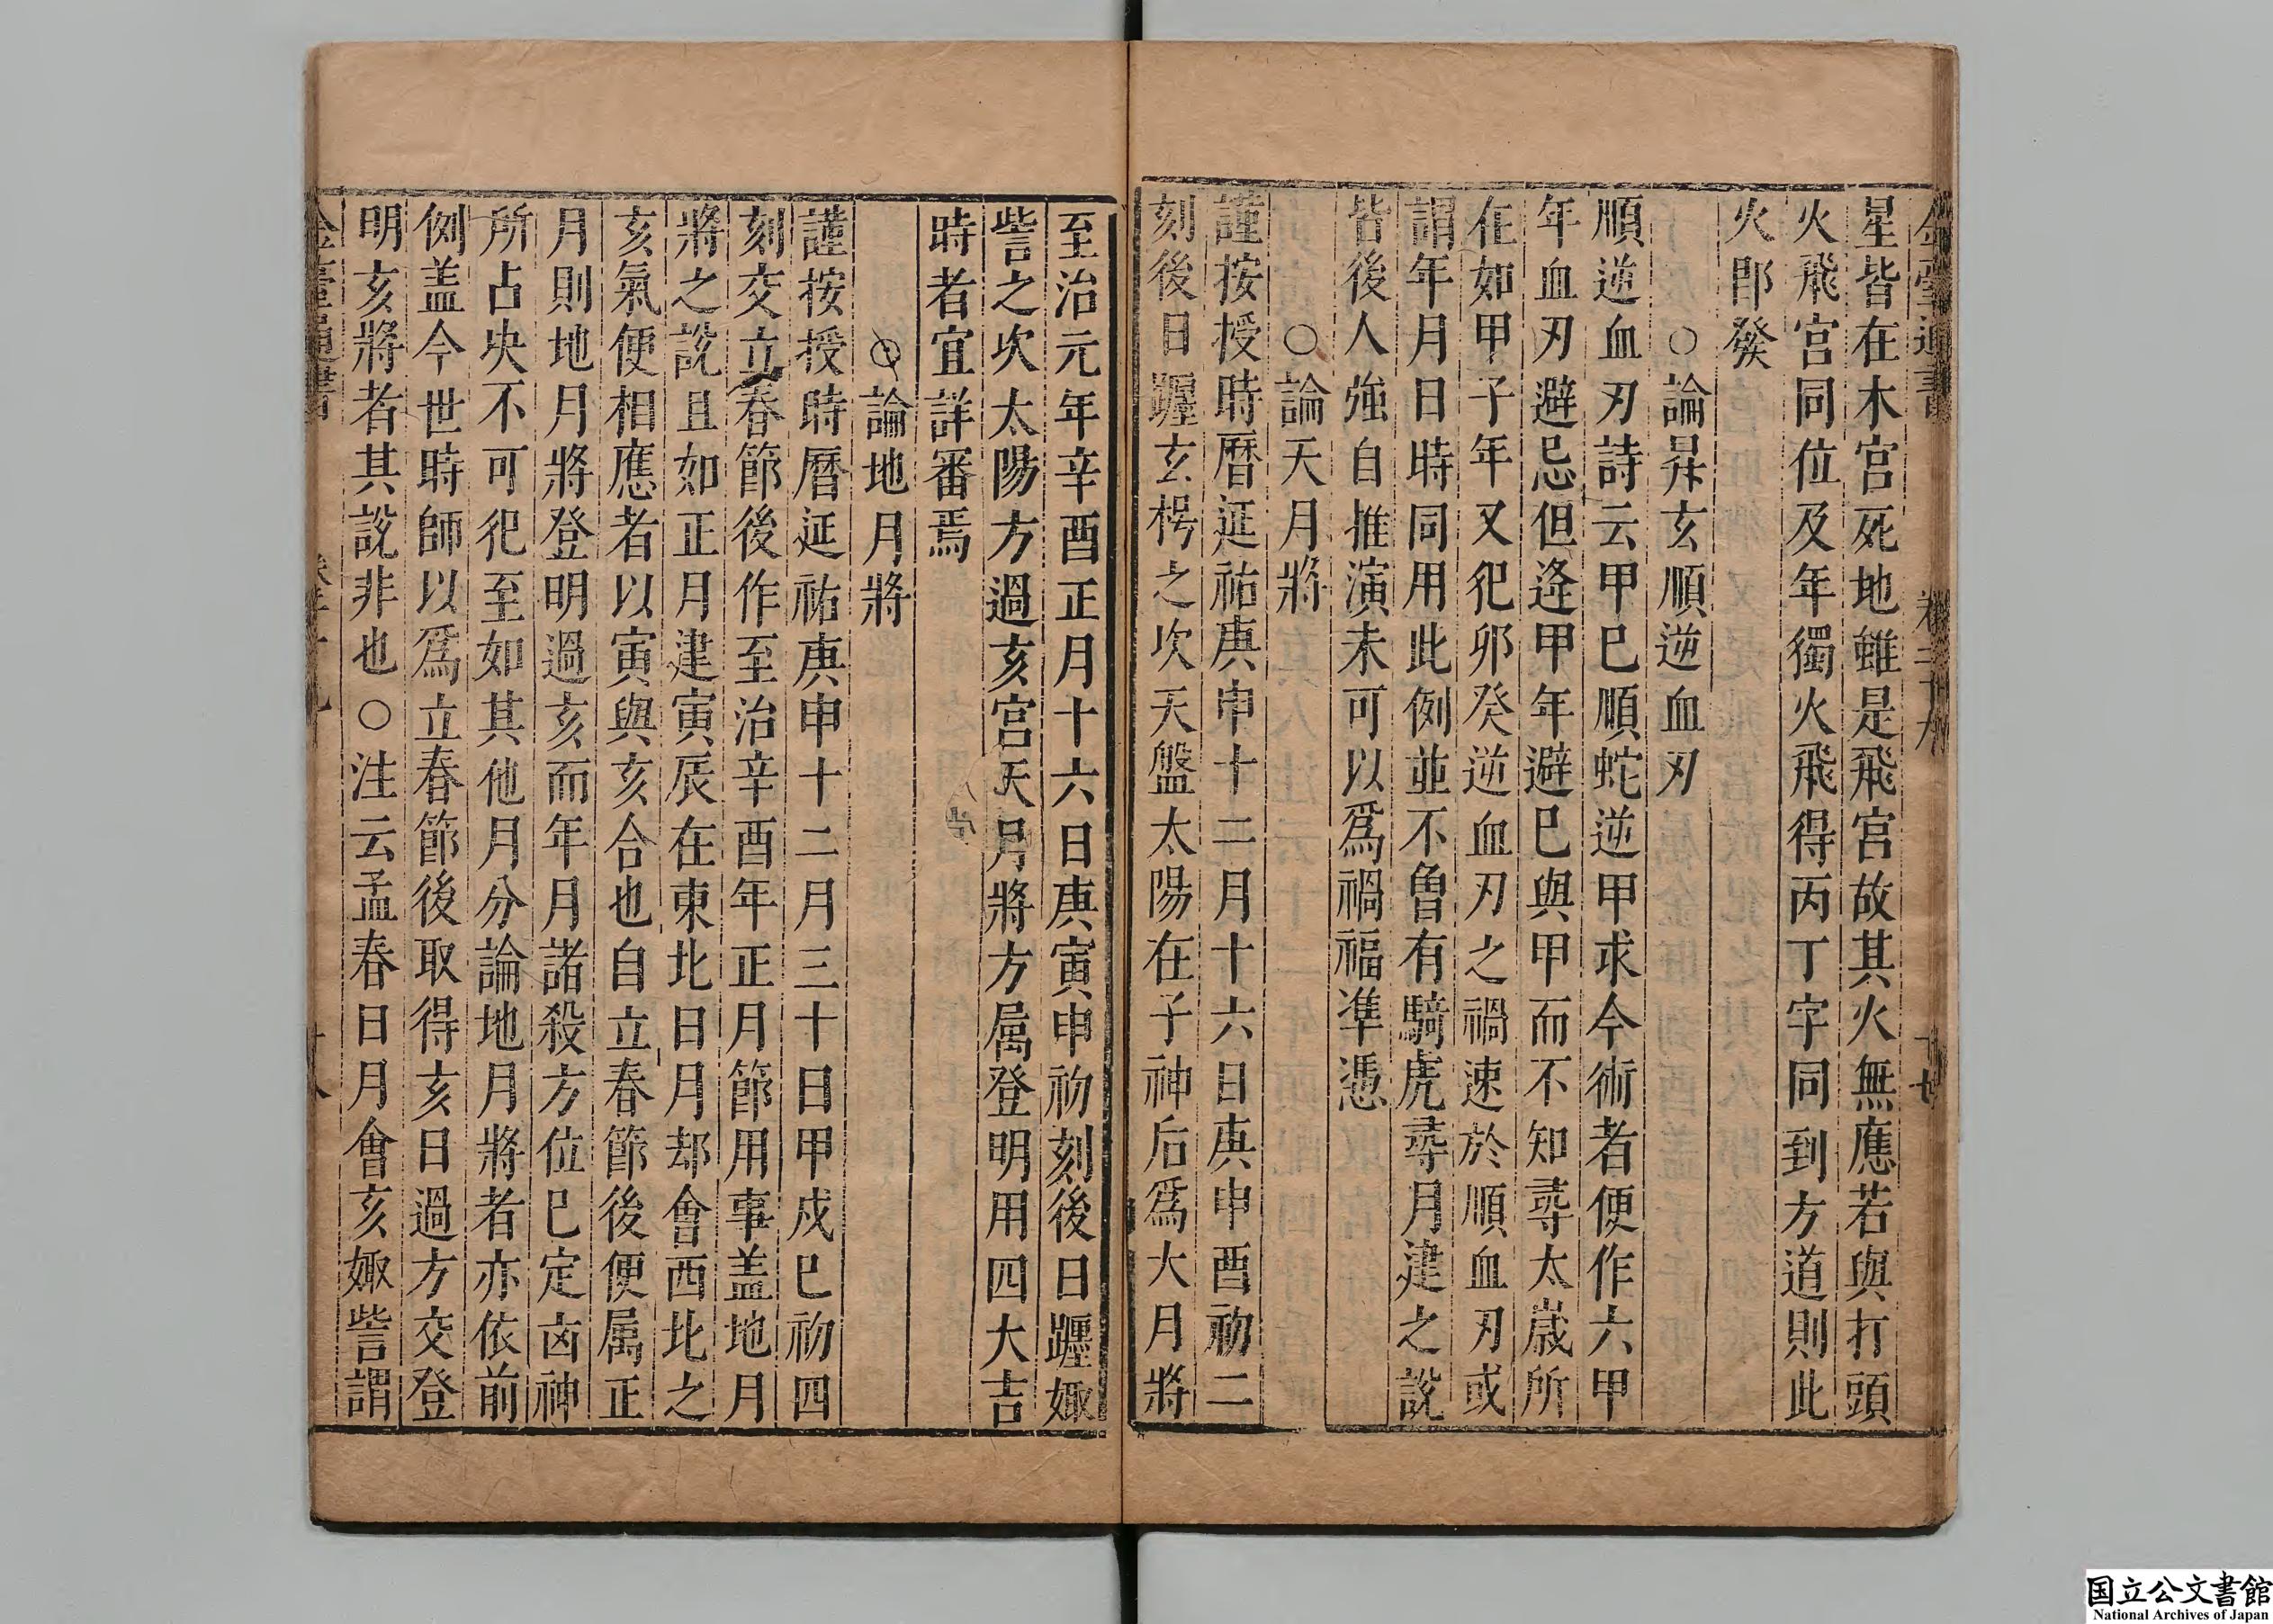 金臺通書 卷三十九 十七
星皆在木宫死地雖是飛宫故其火無應若與打頭
火飛宫同位及年獨火飛得丙丁字同到方道則此
火即發
○論昇玄順逆血刃
順逆血刃詩云甲巳順蛇逆甲求今術者便作六甲
年血刃避忌但逄甲年避巳與甲而不知尋太歲所
在如甲子年又犯卯癸逆血刃之禍速於順血刃或
謂年月日時同用此例並不魯有騎虎尋月建之說
皆後人強自推演未可以爲禍福準憑
○論天月將
謹按授時曆延祐庚申十二月十六日庚申酉初二
刻後日躔玄枵之次天盤太陽在子神后爲大月將
至治元年辛酉正月十六日庚寅申初刻後日躔娵
訾之次太陽方過亥宫天月將方属登明用四大吉
時者宜詳審焉
○論地月將
謹按授時曆延祐庚申十二月三十日甲戌巳初四
刻交立春節後作至治辛酉年正月節用事盖地月
將之說且如正月建寅辰在東北日月却會西北之
亥氣便相應者以寅與亥合也自立春節後便属正
月則地月將登明過亥而年月諸殺方位已定凶神
所占决不可犯至如其他月分論地月將者亦依前
例盖今世時師以爲立春節後取得亥日過方交登
明亥將者其說非也○注云孟春日月會亥娵訾謂
金臺通書
国立公文書館
National Archives of Japan